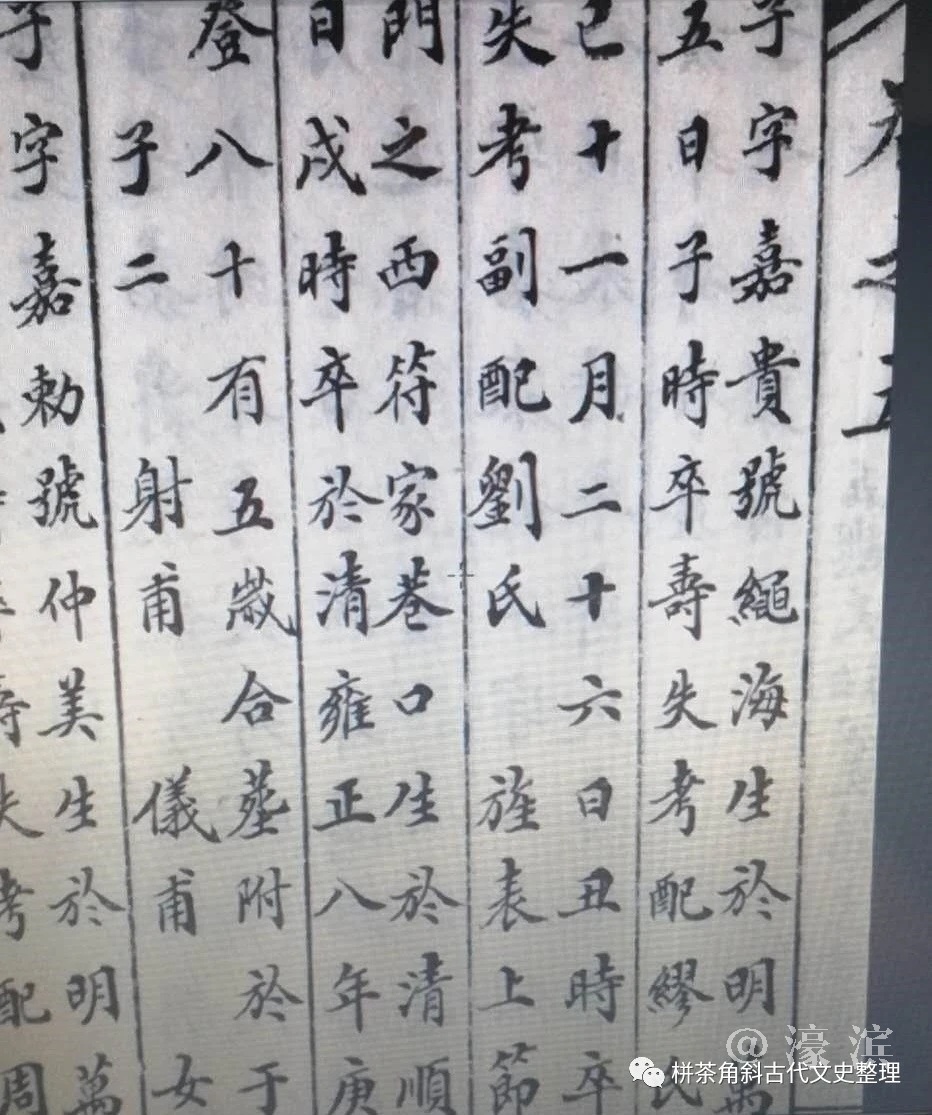 卷之五
子字嘉貴號繩海生於明萬
五日子時卒壽失考配繆氏
巳十一月二十六日丑時卒
失考副配劉氏 旌表上節
門之西符家巷口生於清順
日戌時卒於清雍正八年庚
登八十有五歲合塟附於于
子二 射甫 儀甫 女
子字嘉勅號仲美生於明萬
壽失考配周
@濠滨
栟茶角斜古代文史整理